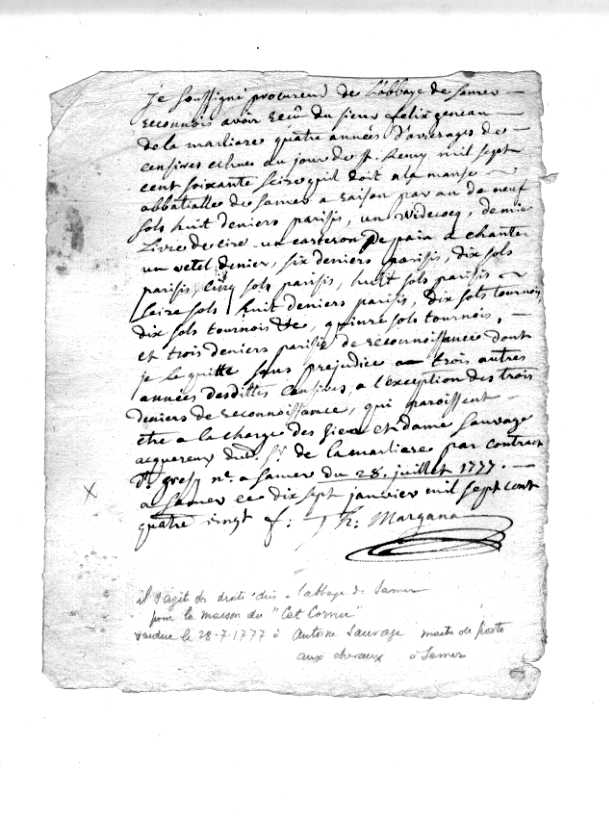 je soussigné procureur de L'abbaye de Samer
reconnois avoir recû du sieur felix geneau
de la marliere quatre années d'arrerages de
censives echues au jour de St. Remy mil sept
cent soixante seize qu'il doit a la manse
abbatialle de Samer a raison par an de neuf
sols huit deniers parisis, un videcoq, demie
Livre de cire un carteron de pain a chanter
un denier, six deniers parisis, dix sols
parisis, cinq sols parisis, huit sols parisis
seize sols huit deniers parisis, dix sols tournois
dix sols tournois, quinze sols tournois,
et trois deniers parisis de reconnoissance dont
je le quitte sans prejudice a trois autres
années desdittes Censives, a l'exception des trois
deniers de reconnoissance, qui paroissent
être a la charge des sieur et dame Sauvage
acquereurs dud. Sr. de lamarliere par contract
dt. gressr nre. a Samer du 28. juillet 1777.
a Samer ce dix sept janvier mil sept cent
quatre vingt f: Th: Margana
x
il s'agit de droits dûs à l'abbaye de Samer
pour la maison du "Cat Cornu"
vendue le 28-7-1777 à Antoine Sauvage maitre de poste
aux chevaux à Samer